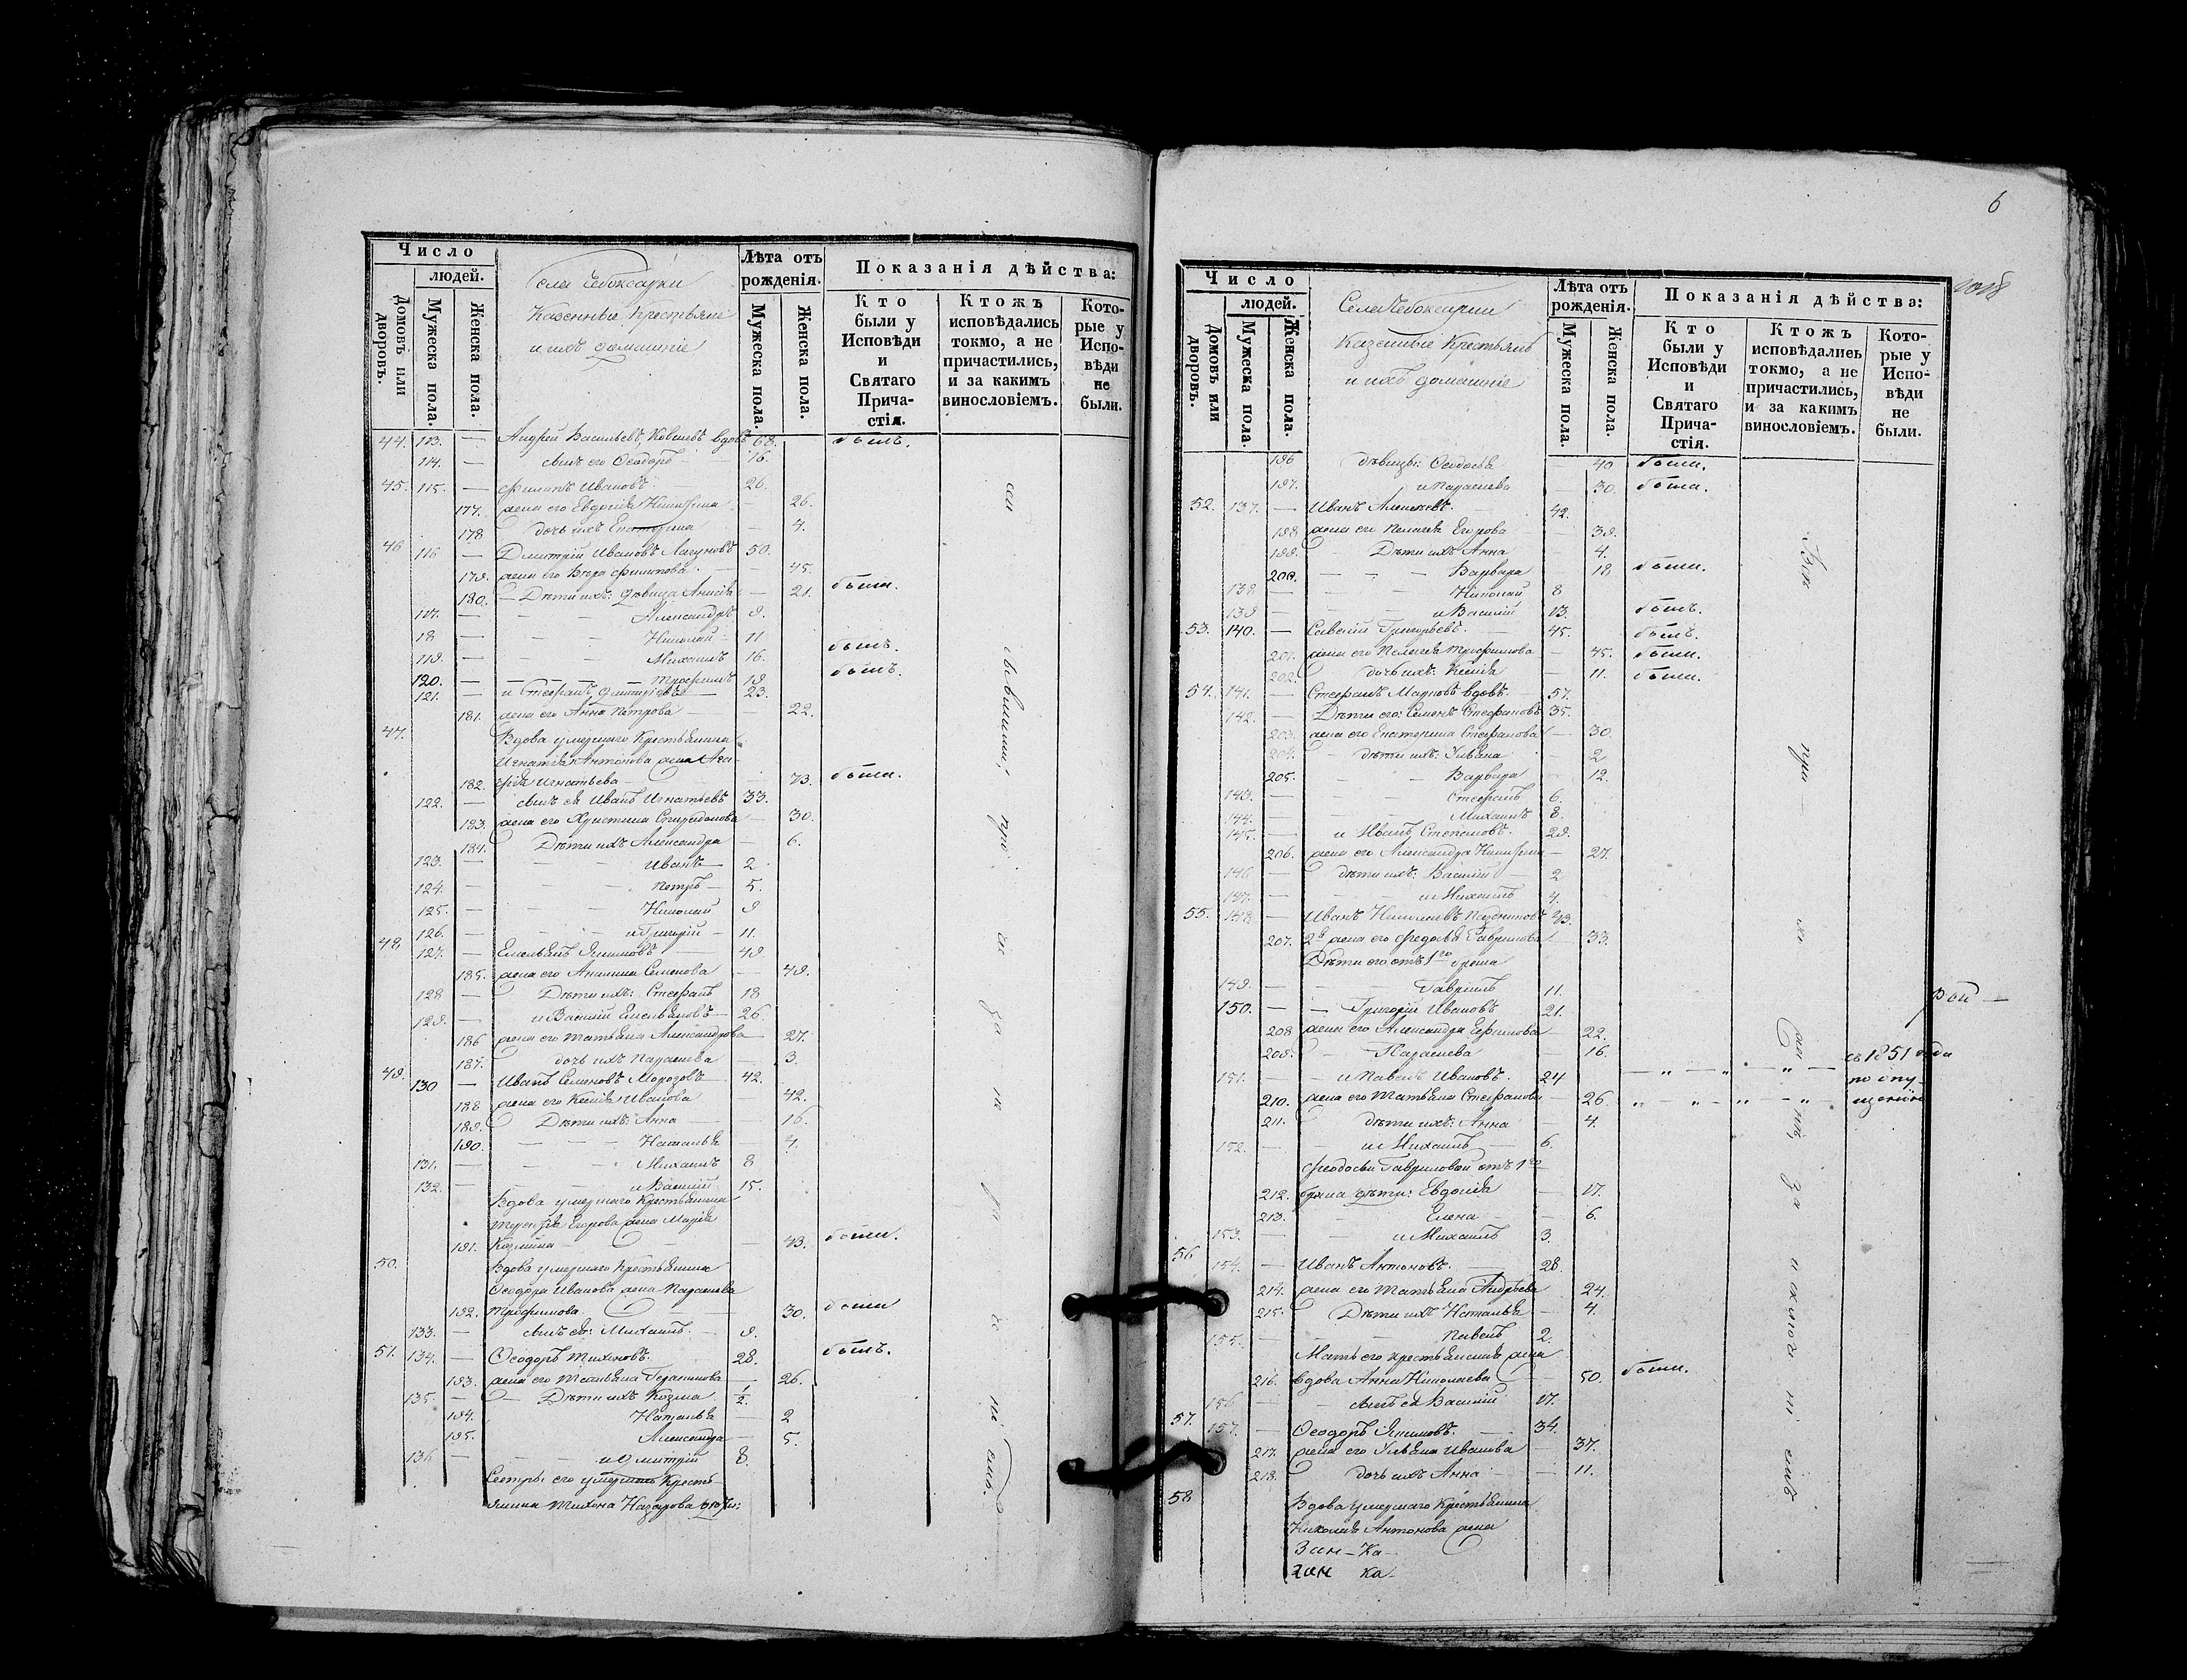 Число
людей.
Домовъ или дворовъ.
Мужеска пола.
Женска пола.
Села Чебоксарки
Казенные Крестьяне
и ихъ домашніе
Лѣта отъ рожденія.
Мужеска пола.
Женска пола.
Показанія дѣйства:
Кто были у Исповѣди и Святаго Прича-стія.
Ктожъ исповѣдались токмо, а не причастились, и за какимъ винословіемъ.
Кото-рые у Испо-вѣди не были.
44. 113. — Андрей Васильевъ, вдовъ 68. былъ.
114. — сынъ его Ѳеодоръ 16.
45. 115. — Филипъ Ивановъ 26.
177. жена его Евдокія 26.
178 дочь ихъ Екатерина — 4.
46 116 — Дмитрій Ивановъ Лагуновъ 50.
179. жена его Вѣра Филипова — 45.
180. — Дѣти ихъ: дѣвица Анисія — 21. была.
117. — Александръ 9.
18 — Николай 11
119. — Михаилъ 16. былъ.
120. — Трофимъ 19 былъ.
121. — и Стефанъ Дмитріевъ — 23.
181. жена его Анна Петрова — 22.
47. Вдова умершаго Крестьянина
Игнатія Антонова жена Ага-
182. фія Игнатьева 73. была.
122. — сынъ ея Иванъ Игнатьевъ 33.
183. жена его Христина Спиридонова — 30.
184. Дѣти ихъ Александра — 6.
123. — Иванъ — 2
124. — Петръ — 5.
125. — Николай 9
126. — и Григорій — 11.
48 127. — Емельянъ 49.
185. жена его Акилина Семенова — 49.
128 — Дѣти ихъ: Стефанъ 18
129. — и Василій Емельяновъ — 26
186 жена его Татьяна Александрова — 27.
187. дочь ихъ Параскева — 3.
49. 130 — Иванъ Семеновъ Морозовъ 42.
188 жена его Ксенія Иванова — 42.
189. Дѣти ихъ: Анна — 16.
190. — Наталья — 4.
131. — Михаилъ 8
132. — и Василій 15.
Вдова умершаго Крестьянина
Терентія Егорова жена Марія
191. Козмина — 43. была.
50. Вдова умершаго Крестьянина
Ѳеодора Иванова жена Параскева
192. Трофимова — 30. была
133. — сынъ ея: Михаилъ. — 9.
51. 134. — Ѳеодоръ Тихоновъ. 28. былъ.
193. жена его Татьяна Герасимова — 26.
135. — Дѣти ихъ Козма 1/2.
194. Наталья — 2
195. Александра — 5.
136 — и Дмитрій 8.
Сестры его умершаго Кресть
янина Тихона Назарова дочери:
6
Число
людей.
Домовъ или дворовъ.
Мужеска пола.
Женска пола.
Села Чебоксарки
Казенные Крестьяне
и ихъ домашніе
Лѣта отъ рожденія.
Мужеска пола.
Женска пола.
Показанія дѣйства:
Кто были у Исповѣди и Святаго Прича-стія.
Ктожъ исповѣдались токмо, а не причастились, и за какимъ винословіемъ.
Кото-рые у Испо-вѣди не были.
196 дѣвицы: Ѳеодосія — 40 была.
197. и Параскева — 30. была.
52. 137. — Иванъ Алексѣевъ. 42.
198 жена его Пелагія Егорова — 39.
199. Дѣти ихъ Анна — 4.
200. — Варвара — 18 была.
138 — Николай 8
139 — и Василій 13. былъ.
53. 140. — Савелій Григорьевъ. 45. былъ.
201. жена его Пелагія Трофимова — 45. была.
202. дочь ихъ: Ксенія — 11. была.
54. 141. — Стефанъ Марковъ вдовъ. 57.
142. — Дѣти его: Семенъ Стефановъ 35.
203. жена его Екатерина Стефанова — 30.
204. дѣти ихъ: Ульяна — 2
205. — Варвара — 12.
143. — Стефанъ 6.
144. — Михаилъ 8.
145. — и Иванъ Степановъ. 29.
206. жена его Александра — 27.
146 — дѣти ихъ: Василій — 2
147. — и Михаилъ 4.
55. 148 — Иванъ Николаевъ 43.
207. 2я жена его Федосья Гаврилова — 33.
Дѣти его отъ 1го брака
149. — Гавріилъ 11.
150. — Григорій Ивановъ 21.
208 жена его Александра Ефимова — 22.
209. — Параскева — 16.
151. — и Павелъ Ивановъ. 24 — съ 1851 года
210. жена его Татьяна Стефанова — 26. по опу-щенію
211. дѣти ихъ: Анна — 4.
152. — и Михаилъ — 6.
Феодосьи Гавриловой отъ 1го
212. брака дѣти: Евдокія — 17.
213. — Елена — 6.
153. — и Михаилъ 3.
56 154. — Иванъ Антоновъ. — 28.
214. жена его Татьяна Андреева 24.
215. Дѣти ихъ Наталья — 4.
155. — Павелъ 2.
Мать его крестьянская жена
216. вдова Анна Николаева — 50. была.
156 — сынъ ея Василій 17.
57. 157. — Ѳеодоръ 34.
217. жена его Ульяна Иванова — 37.
218. дочь ихъ Анна — 11.
58 Вдова умершаго Крестьянина
Николая Антонова жена
Зин-ка
Зин ка